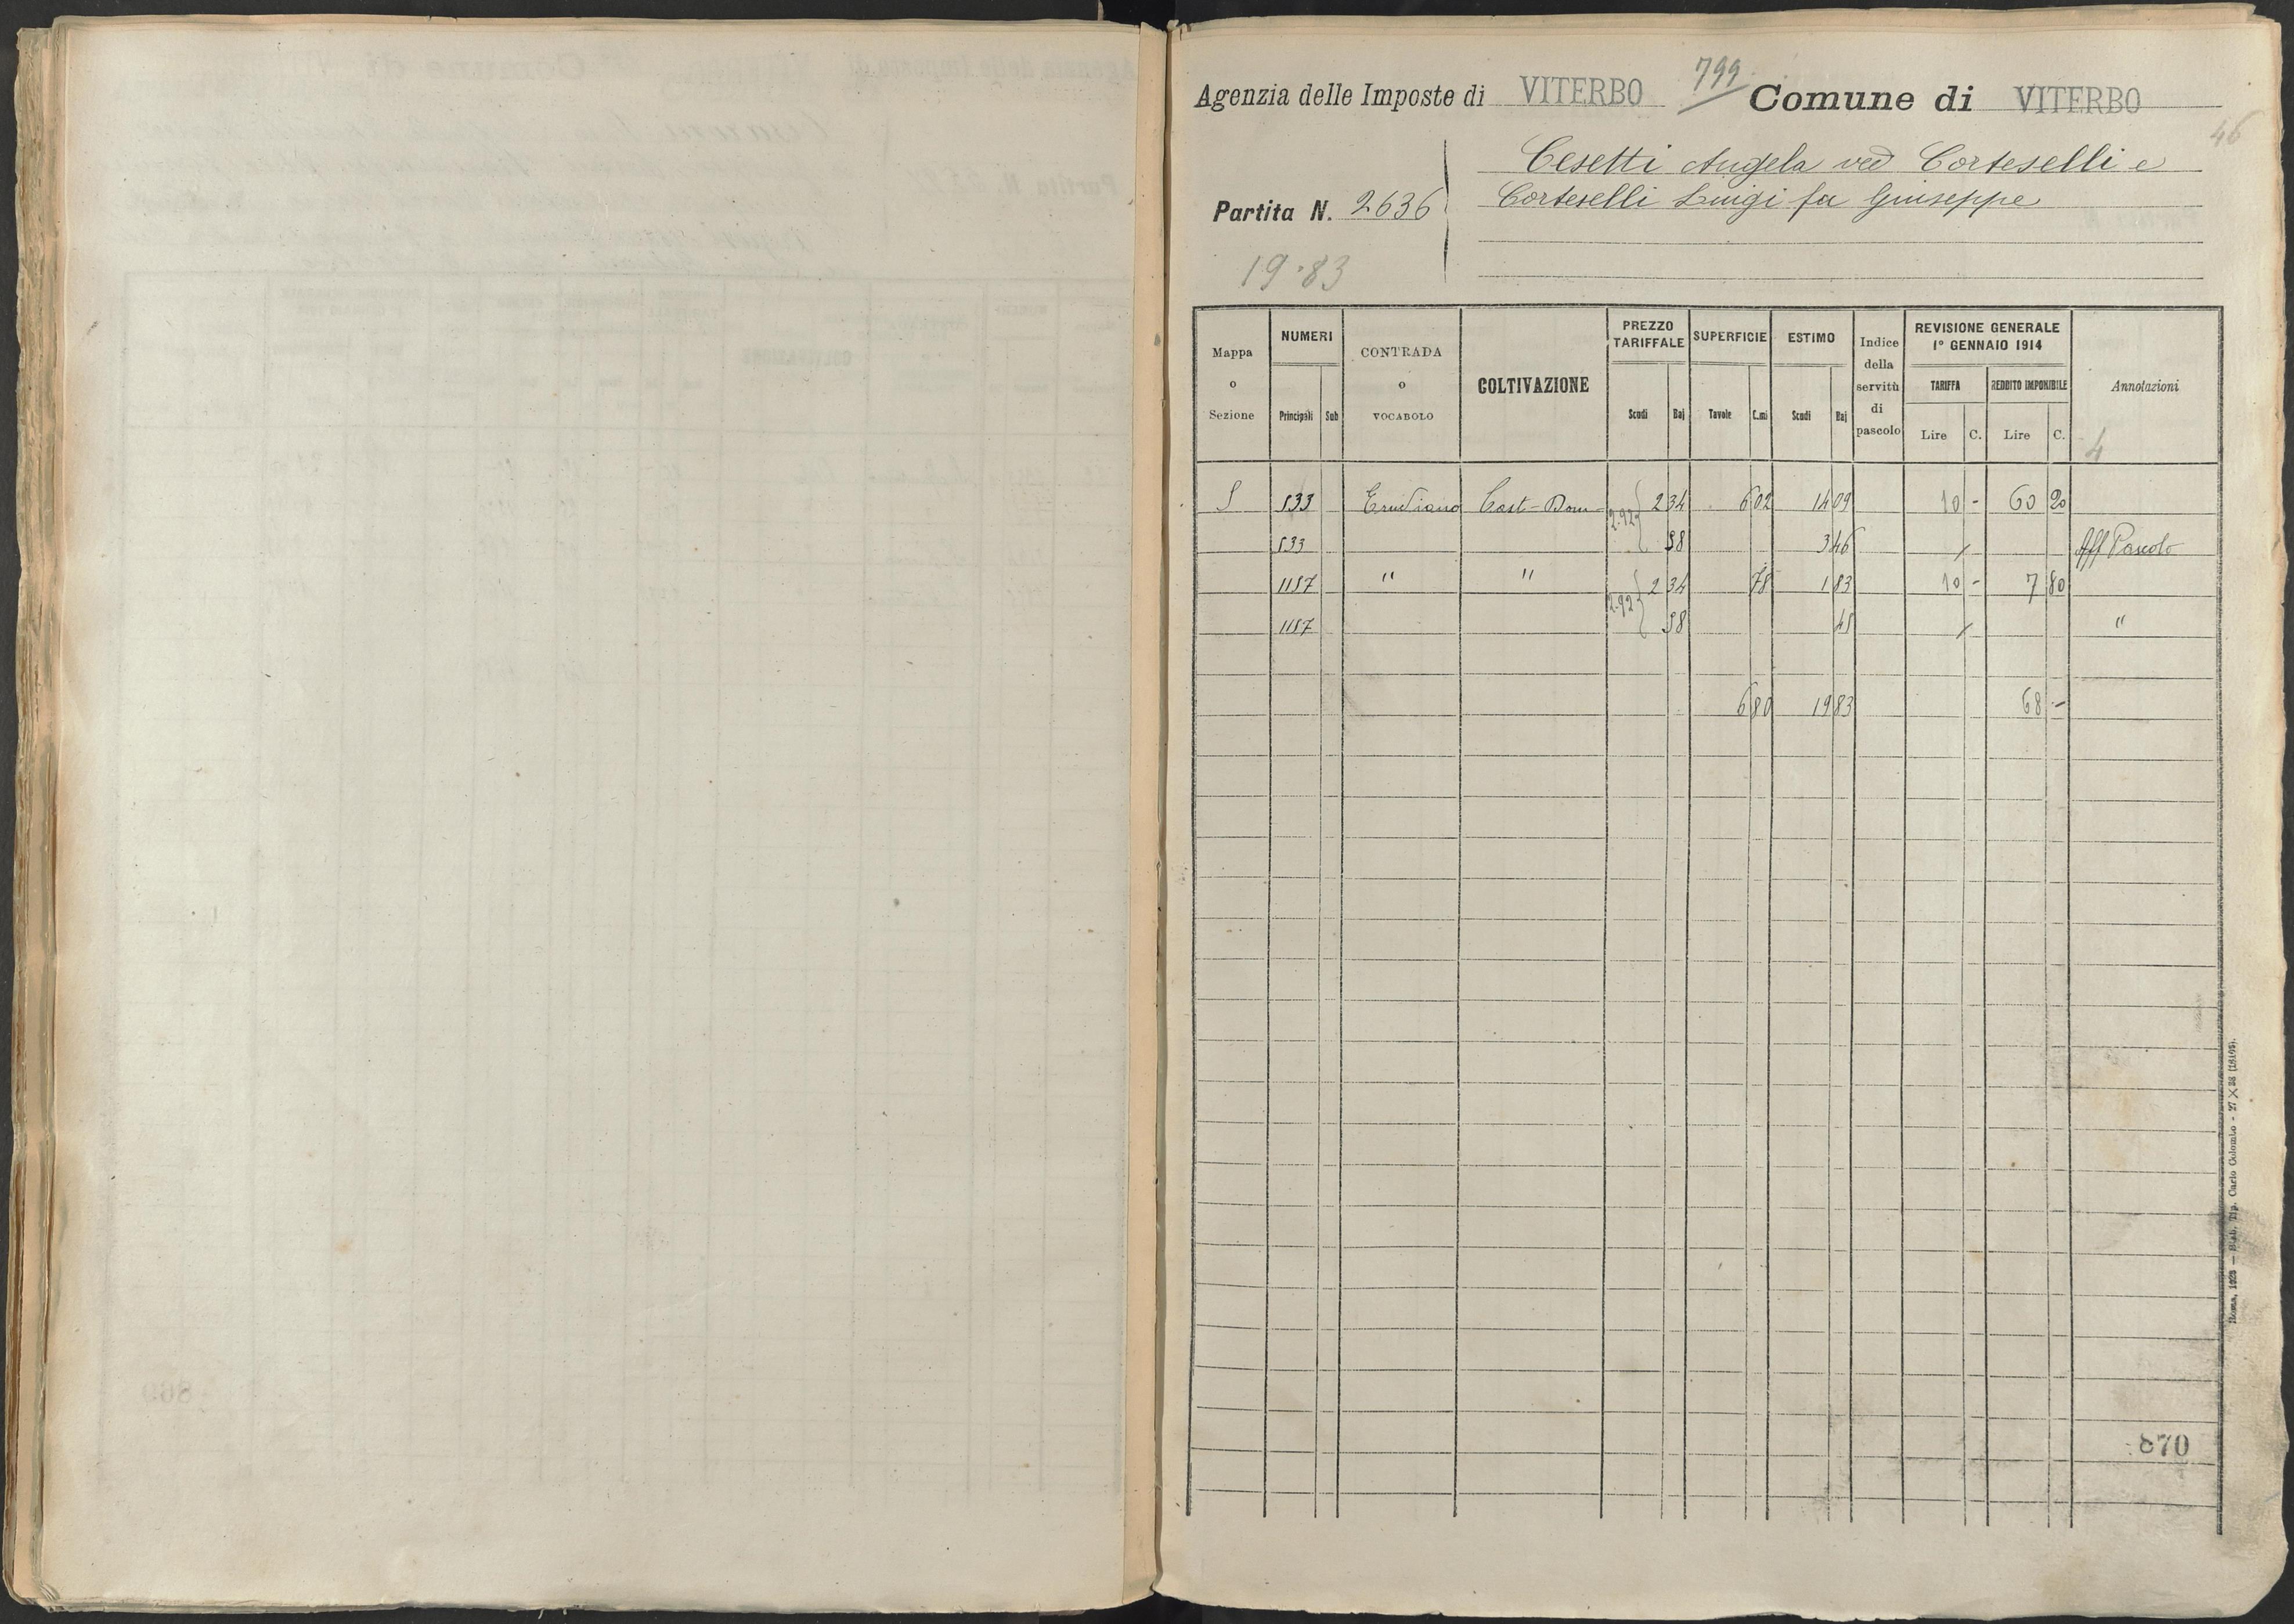 Agenzia delle Imposte di VITERBO 799 Comune di VITERBO
46
Cesetti Angela ved Corteselli e
Partita N. 2636 Corteselli Luigi fu Giuseppe
19.83
Mappa o Sezione NUMERI Principali Sub CONTRADA o VOCABOLO COLTIVAZIONE PREZZO TARIFFALE Scudi Baj SUPERFICIE Tavole C.mi ESTIMO Scudi Baj Indice della servitù di pascolo REVISIONE GENERALE 1° GENNAIO 1914 TARIFFA Lire C. REDDITO IMPONIBILE Lire C. Annotazioni
4
S 533 Cast-Dom 2.92 2 34 6 02 14 09 10 - 60 20
533 58 3 46 Aff Pascolo
1157 " " 2.92 2 34 78 1 83 10 - 7 80
1157 58 45 "
6 80 19 83 68 -
870
Roma, 1923 — Stab. Tip. Carlo Colombo - 27 X 38